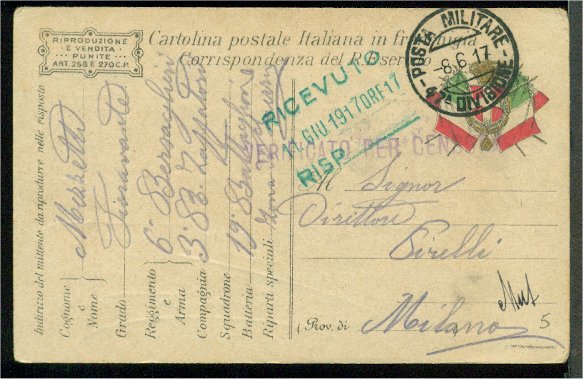 RIPRODUZIONE
E VENDITA
PUNITE
ART. 268 E 270 C.P.
Cartolina postale Italiana in franchigia
Corrispondenza del R. Esercito
POSTA MILITARE
8.6.17
47ª DIVISIONE
RICEVUTO
GIU.1917
RISP.
VERIFICATO PER CENSURA
Indirizzo del mittente da riprodurre nelle risposte
Cognome e Nome
Fioravante
Grado
Reggimento e Arma 6º Bersaglieri
Compagnia 3ª
Squadrone 19º Battaglione
Batteria
Riparti speciali Zona
Al Signor
Direttore
Pirelli
(Prov. di Milano
5